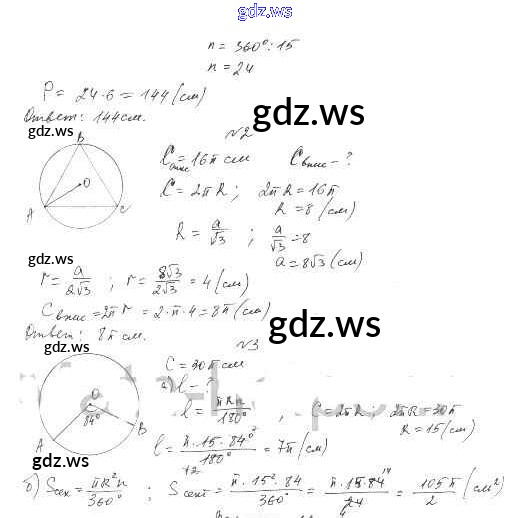 gdz.ws
n = 360° : 15
n = 24
P = 24·6 = 144 (см)
Ответ: 144 см.
gdz.ws
gdz.ws
№2
B
O
A
C
C опис = 16π см C впис - ?
C = 2πR ; 2πR = 16π
R = 8 (см)
R = a/√3 ; a/√3 = 8
a = 8√3 (см)
gdz.ws
r = a/2√3 ; r = 8√3/2√3 = 4 (см)
C впис = 2πr = 2·π·4 = 8π (см)
Ответ: 8π см.
gdz.ws
№3
O
84°
A
B
C = 30π см
а) l - ?
l = πRn/180° , C = 2πR ; 2πR = 30π
R = 15 (см)
l = π·15·84°/180° = 7π (см)
12
gdz.ws
б) S сек = πR²n/360° ; S сект = π·15²·84/360° = π·15·84/24 = 105π/2 (см²)
gdz.ws